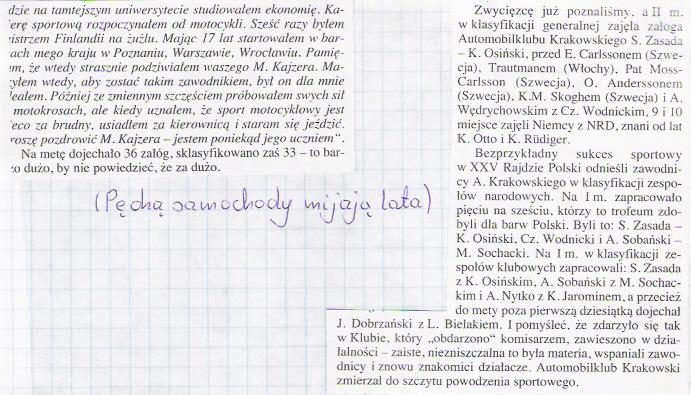 dzie na tamtejszym uniwersytecie studiowałem ekonomię. Ka-
ierę sportową rozpoczynałem od motocykli. Sześć razy byłem
nistrzem Finlandii na żużlu. Mając 17 lat startowałem w bar-
ach mego kraju w Poznaniu, Warszawie, Wrocławiu. Pamię-
am, że wtedy strasznie podziwiałem waszego M. Kajzera. Ma-
zyłem wtedy, aby zostać takim zawodnikiem, był on dla mnie
lealem. Później ze zmiennym szczęściem próbowałem swych sił
motokrosach, ale kiedy uznałem, że sport motocyklowy jest
ieco za brudny, usiadłem za kierownicą i staram się jeździć.
roszę pozdrowić M. Kajzera – jestem poniekąd jego uczniem“.
Na metę dojechało 36 załóg, sklasyfikowano zaś 33 – to bar-
zo dużo, by nie powiedzieć, że za dużo.
(Pędzą samochody mijają lata)
Zwycięzcę już poznaliśmy, a II m.
w klasyfikacji generalnej zajęła załoga
Automobilklubu Krakowskiego S. Zasada
– K. Osiński, przed E. Carlssonem (Szwe-
cja), Trautmanem (Włochy), Pat Moss-
Carlsson (Szwecja), O. Anderssonem
(Szwecja), K.M. Skoghem (Szwecja) i A.
Wędrychowskim z Cz. Wodnickim, 9 i 10
miejsce zajęli Niemcy z NRD, znani od lat
K. Otto i K. Rüdiger.
Bezprzykładny sukces sportowy
w XXV Rajdzie Polski odnieśli zawodni-
cy A. Krakowskiego w klasyfikacji zespo-
łów narodowych. Na I m. zapracowało
pięciu na sześciu, którzy to trofeum zdo-
byli dla barw Polski. Byli to: S. Zasada –
K. Osiński, Cz. Wodnicki i A. Sobański –
M. Sochacki. Na I m. w klasyfikacji ze-
społów klubowych zapracowali: S. Zasada
z K. Osińskim, A. Sobański z M. Sochac-
kim i A. Nytko z K. Jarominem, a przecież
do mety poza pierwszą dziesiątką dojechał
J. Dobrzański z L. Bielakiem. I pomyśleć, że zdarzyło się tak
w Klubie, który „obdarzono“ komisarzem, zawieszono w dzia-
łalności – zaiste, niezniszczalna to była materia, wspaniali zawo-
dnicy i znowu znakomici działacze. Automobilklub Krakowski
zmierzał do szczytu powodzenia sportowego.